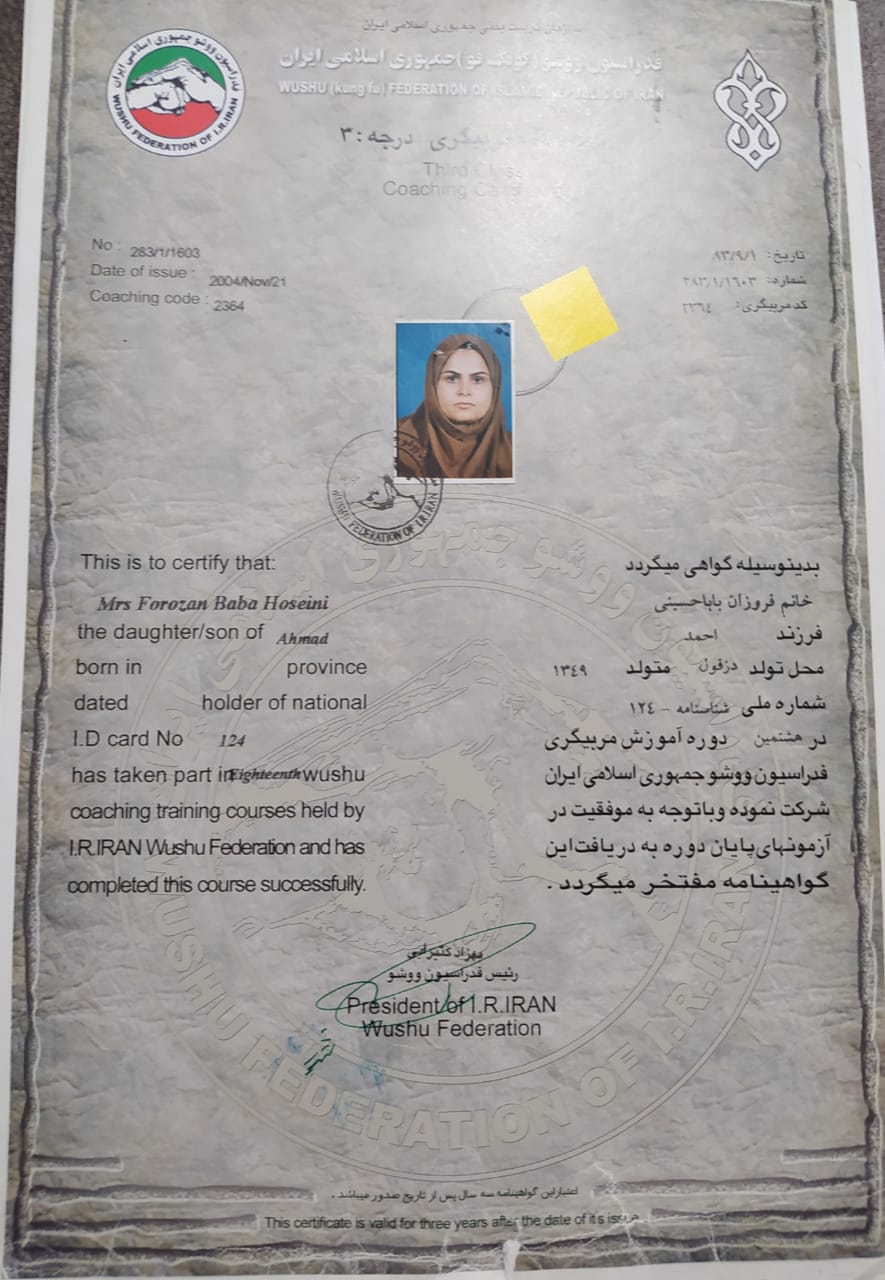 سازمان تربیت بدنی جمهوری اسلامی ایران
فدراسیون ووشو (کونگ فو) جمهوری اسلامی ایران
WUSHU (kung fu) FEDERATION OF ISLAMIC REPUBLIC OF IRAN
فدراسیون ووشو جمهوری اسلامی ایران
WUSHU FEDERATION OF I.R.IRAN
مربیگری درجه : ۳
Third Class
Coaching
No : 283/1/1603
Date of issue : 2004/Nov/21
Coaching code : 2364
تاریخ: ۸۳/۹/۱
شماره: ۲۸۳/۱/۱۶۰۳
کد مربیگری: ۲۳۶٤
WUSHU FEDERATION OF I.R.IRAN
This is to certify that:
Mrs Forozan Baba Hoseini
the daughter/son of Ahmad
born in province
dated holder of national
I.D card No 124
has taken part in Eighteenth wushu
coaching training courses held by
I.R.IRAN Wushu Federation and has
completed this course successfully.
بدینوسیله گواهی میگردد
خانم فروزان باباحسینی
فرزند احمد
محل تولد دزفول متولد ۱۳٤۹
شماره ملی شناسنامه - ۱۲٤
در هشتمین دوره آموزش مربیگری
فدراسیون ووشو جمهوری اسلامی ایران
شرکت نموده و باتوجه به موفقیت در
آزمونهای پایان دوره به دریافت این
گواهینامه مفتخر میگردد .
رئیس فدراسیون ووشو
President of I.R.IRAN
Wushu Federation
WUSHU FEDERATION OF I.R.IRAN
اعتبار این گواهینامه سه سال پس از تاریخ صدور میباشد .
This certificate is valid for three years after the date of it's issue.